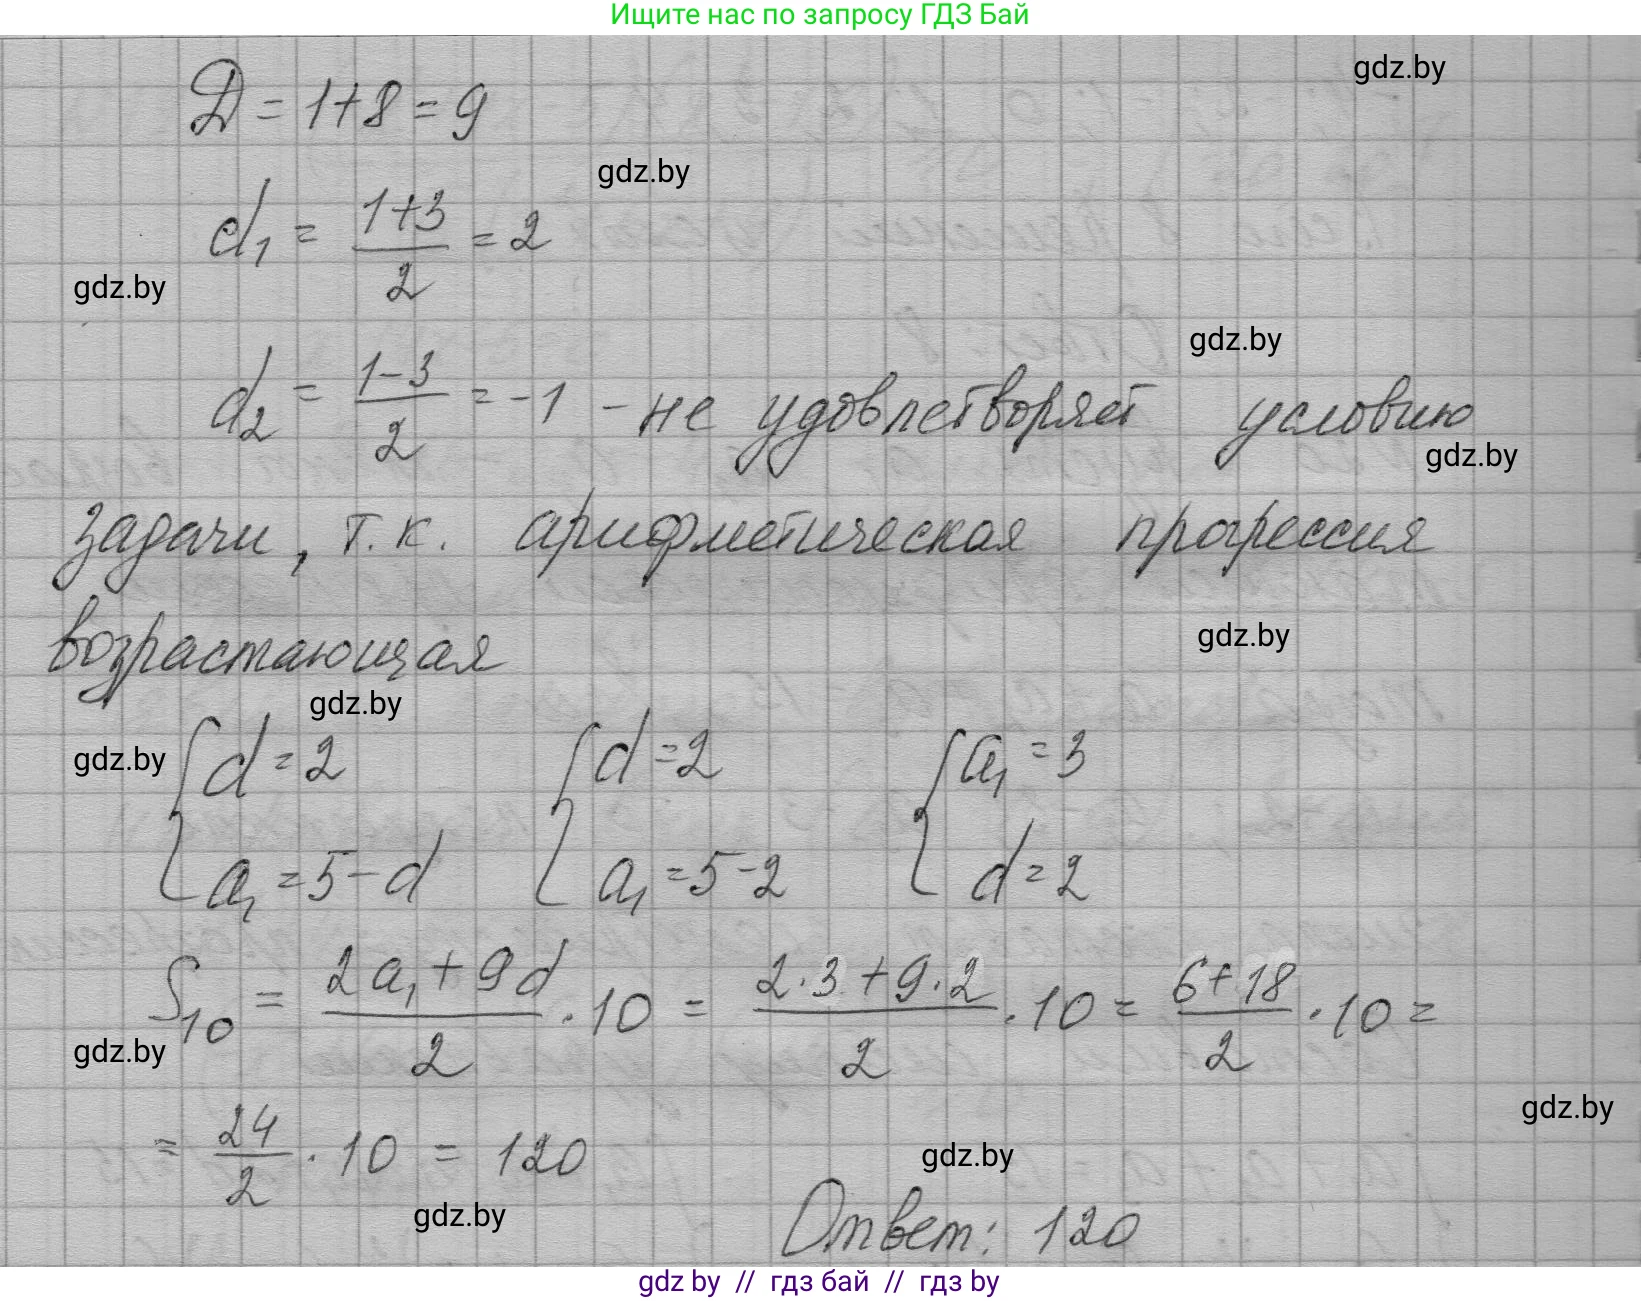 Ищите нас по запросу ГДЗ Бай
gdz.by
D = 1+8 = 9
gdz.by
d₁ = (1+3)/2 = 2
gdz.by
gdz.by
d₂ = (1-3)/2 = -1 - не удовлетворяет условию
gdz.by
задачи, т.к. арифметическая прогрессия
возрастающая
gdz.by
gdz.by
gdz.by
{ d = 2 { d = 2 { a₁ = 3
a₁ = 5-d a₁ = 5-2 d = 2
S₁₀ = (2a₁+9d)/2 · 10 = (2·3+9·2)/2 · 10 = (6+18)/2 · 10 =
gdz.by
gdz.by
= 24/2 · 10 = 120
gdz.by
gdz.by
Ответ: 120
gdz by // гдз бай // гдз by